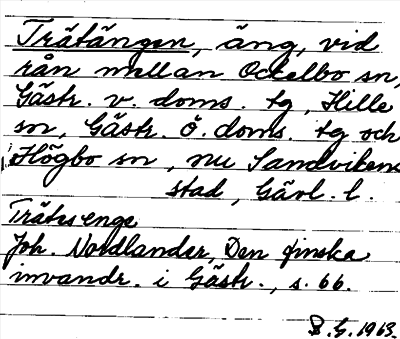 Trätängen, äng, vid
rån mellan Ockelbo sn,
Gästr. v. doms. tg, Hille
sn, Gästr. ö. doms. tg och
Högbo sn, nu Sandvikens
stad, Gävl. l.
Trätsenge
Joh. Nordlander, Den finska
invandr. i Gästr., s. 66.
B.G. 1963.